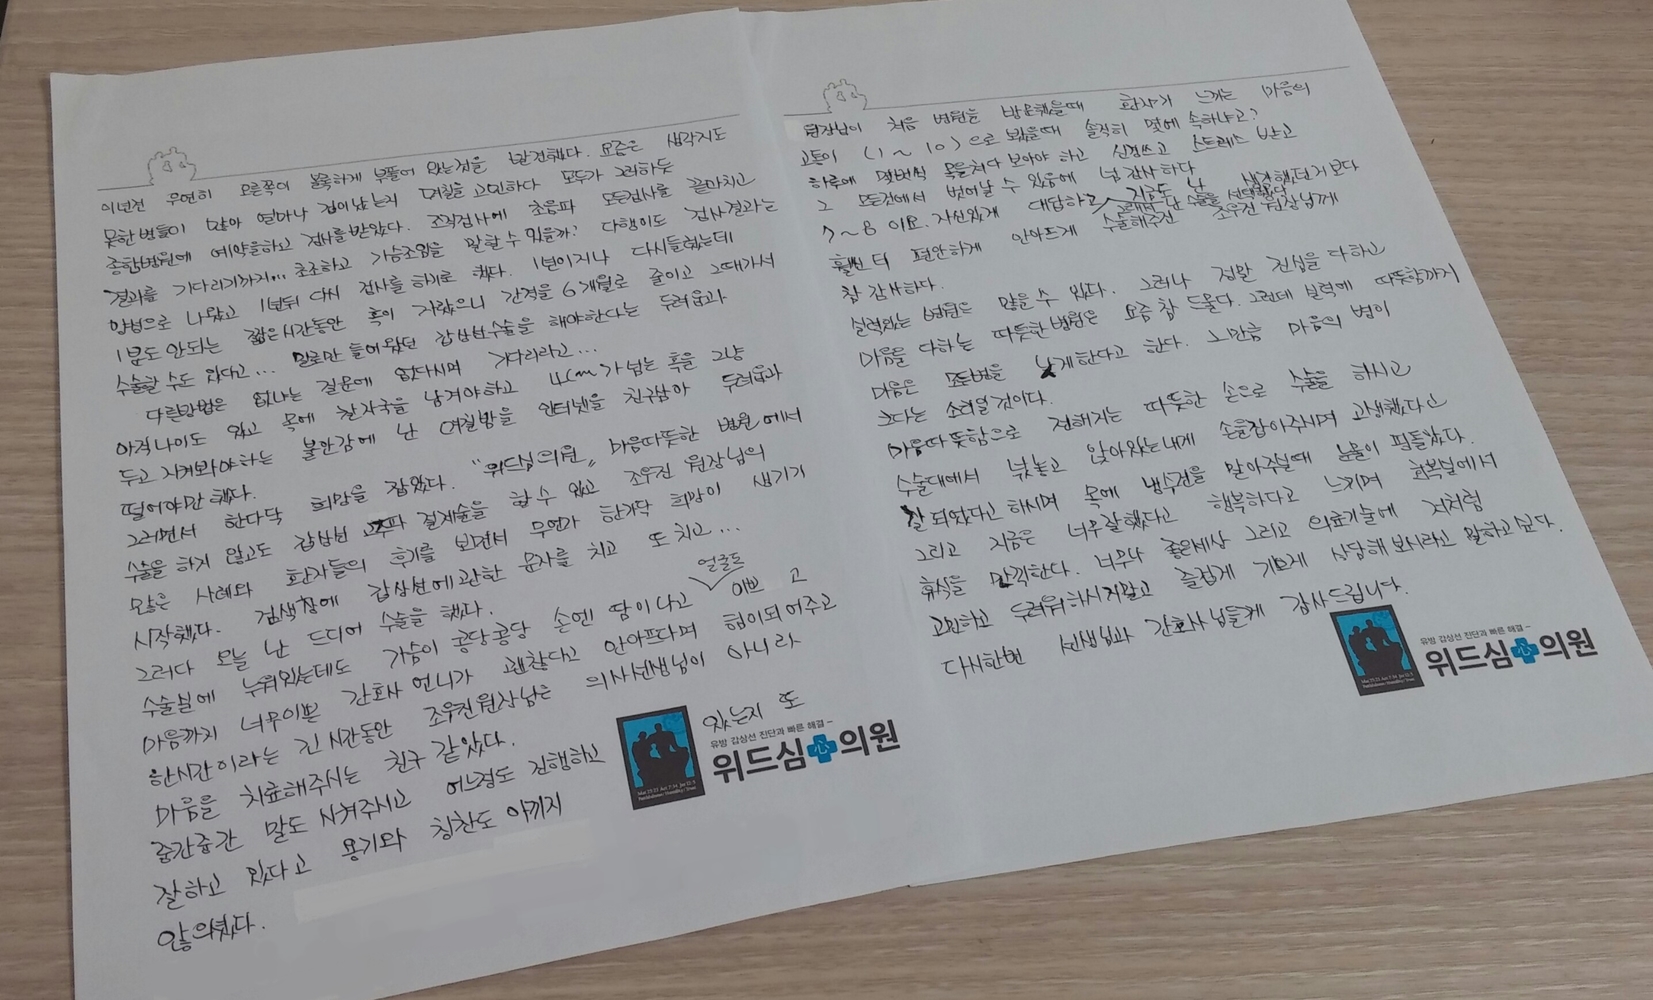 이년전 우연히 오른쪽이 볼록하게 부풀어 있는것을 발견했다. 요즘은 생각지도
못한 병들이 많아 얼마나 겁이났는지 며칠을 고민하다 모두가 그러하듯
종합병원에 예약을하고 검사를 받았다. 조직검사에 초음파 모든검사를 끝마치고
결과를 기다리기까지... 초조하고 가슴조임을 말할 수 있을까? 다행이도 검사결과는
양성으로 나왔고 1년뒤 다시 검사를 하기로 했다. 1년이지나 다시들렸는데
1분도 안되는 짧은시간동안 혹이 자랐으니 간격을 6개월로 줄이고 그때가서
수술할 수도 있다고... 말로만 들어왔던 갑상선수술을 해야한다는 두려움과
다른방법은 없냐는 질문에 없다시며 기다리라고...
아직나이도 있고 목에 칼자국을 남겨야하고 4cm가넘는 혹을 그냥
두고 지켜봐야하는 불안감에 난 며칠밤을 인터넷을 친구삼아 두려움과
떨어야만 했다.
그러면서 한다닥 희망을 잡았다. "위드심의원" 마음따뜻한 병원에서
수술을 하지 않고도 갑상선 고주파 절제술을 할 수 있고 조우진 원장님의
많은 사례와 환자들의 후기를 보면서 무언가 한가닥 희망이 생기기
시작했다. 검색창에 갑상선에관한 문자를 치고 또 치고...
그러다 오늘 난 드디어 수술을 했다.
수술실에 누워있는데도 가슴이 콩당콩당 손엔 땀이나고 얼굴도 이쁘고
마음까지 너무이쁜 간호사 언니가 괜찮다고 안아프다며 힘이되어주고
한시간이라는 긴 시간동안 조우진원장님은 의사선생님이 아니라
마음을 치료해주시는 친구 같았다.
중간중간 말도 시켜주시고 어느정도 진행하고 있는지 또
잘하고 있다고 용기와 칭찬도 아끼지
않으셨다.
유방 갑상선 진단과 빠른 해결~
위드심의원
원장님이 처음 병원을 방문했을때 환자가 느끼는 마음의
고통이 (1~10)으로 봤을때 솔직히 몇에 속하냐고?
하루에 몇번씩 목을쳐다 보아야 하고 신경쓰고 스트레스 받고
그 모든것에서 벗어날 수 있음에 넘 감사하다
7~8 이요. 자신있게 대답하고 그래서 난 수술을 선택했다 지금도 난 생각했던거보다
훨씬 더 편안하게 안아프게 수술해주신 조우진 원장님께
참 감사하다.
실력있는 병원은 많을수 있다. 그러나 정말 진심을 다하고
마음을 다하는 따뜻한병원은 요즘 참 드물다. 그런데 실력에 따뜻함까지
마음은 모든병을 낫게한다고 한다. 그만큼 마음의 병이
크다는 소리일것이다.
마음따뜻함으로 전해지는 따뜻한 손으로 수술을 하시고
수술대에서 넋놓고 앉아있는내게 손을잡아주시며 고생했다고
잘 되었다고 하시며 목에 냉수건을 말아주실때 눈물이 핑돌았다.
그리고 지금은 너무잘했다고 행복하다고 느끼며 회복실에서
휴식을 만끽한다. 너무나 좋은세상 그리고 의료기술에 저처럼
고민하고 두려워하시지말고 즐겁게 기쁘게 상담해 보시라고 말하고싶다.
다시한번 선생님과 간호사님들께 감사드립니다.
유방 갑상선 진단과 빠른 해결~
위드심의원